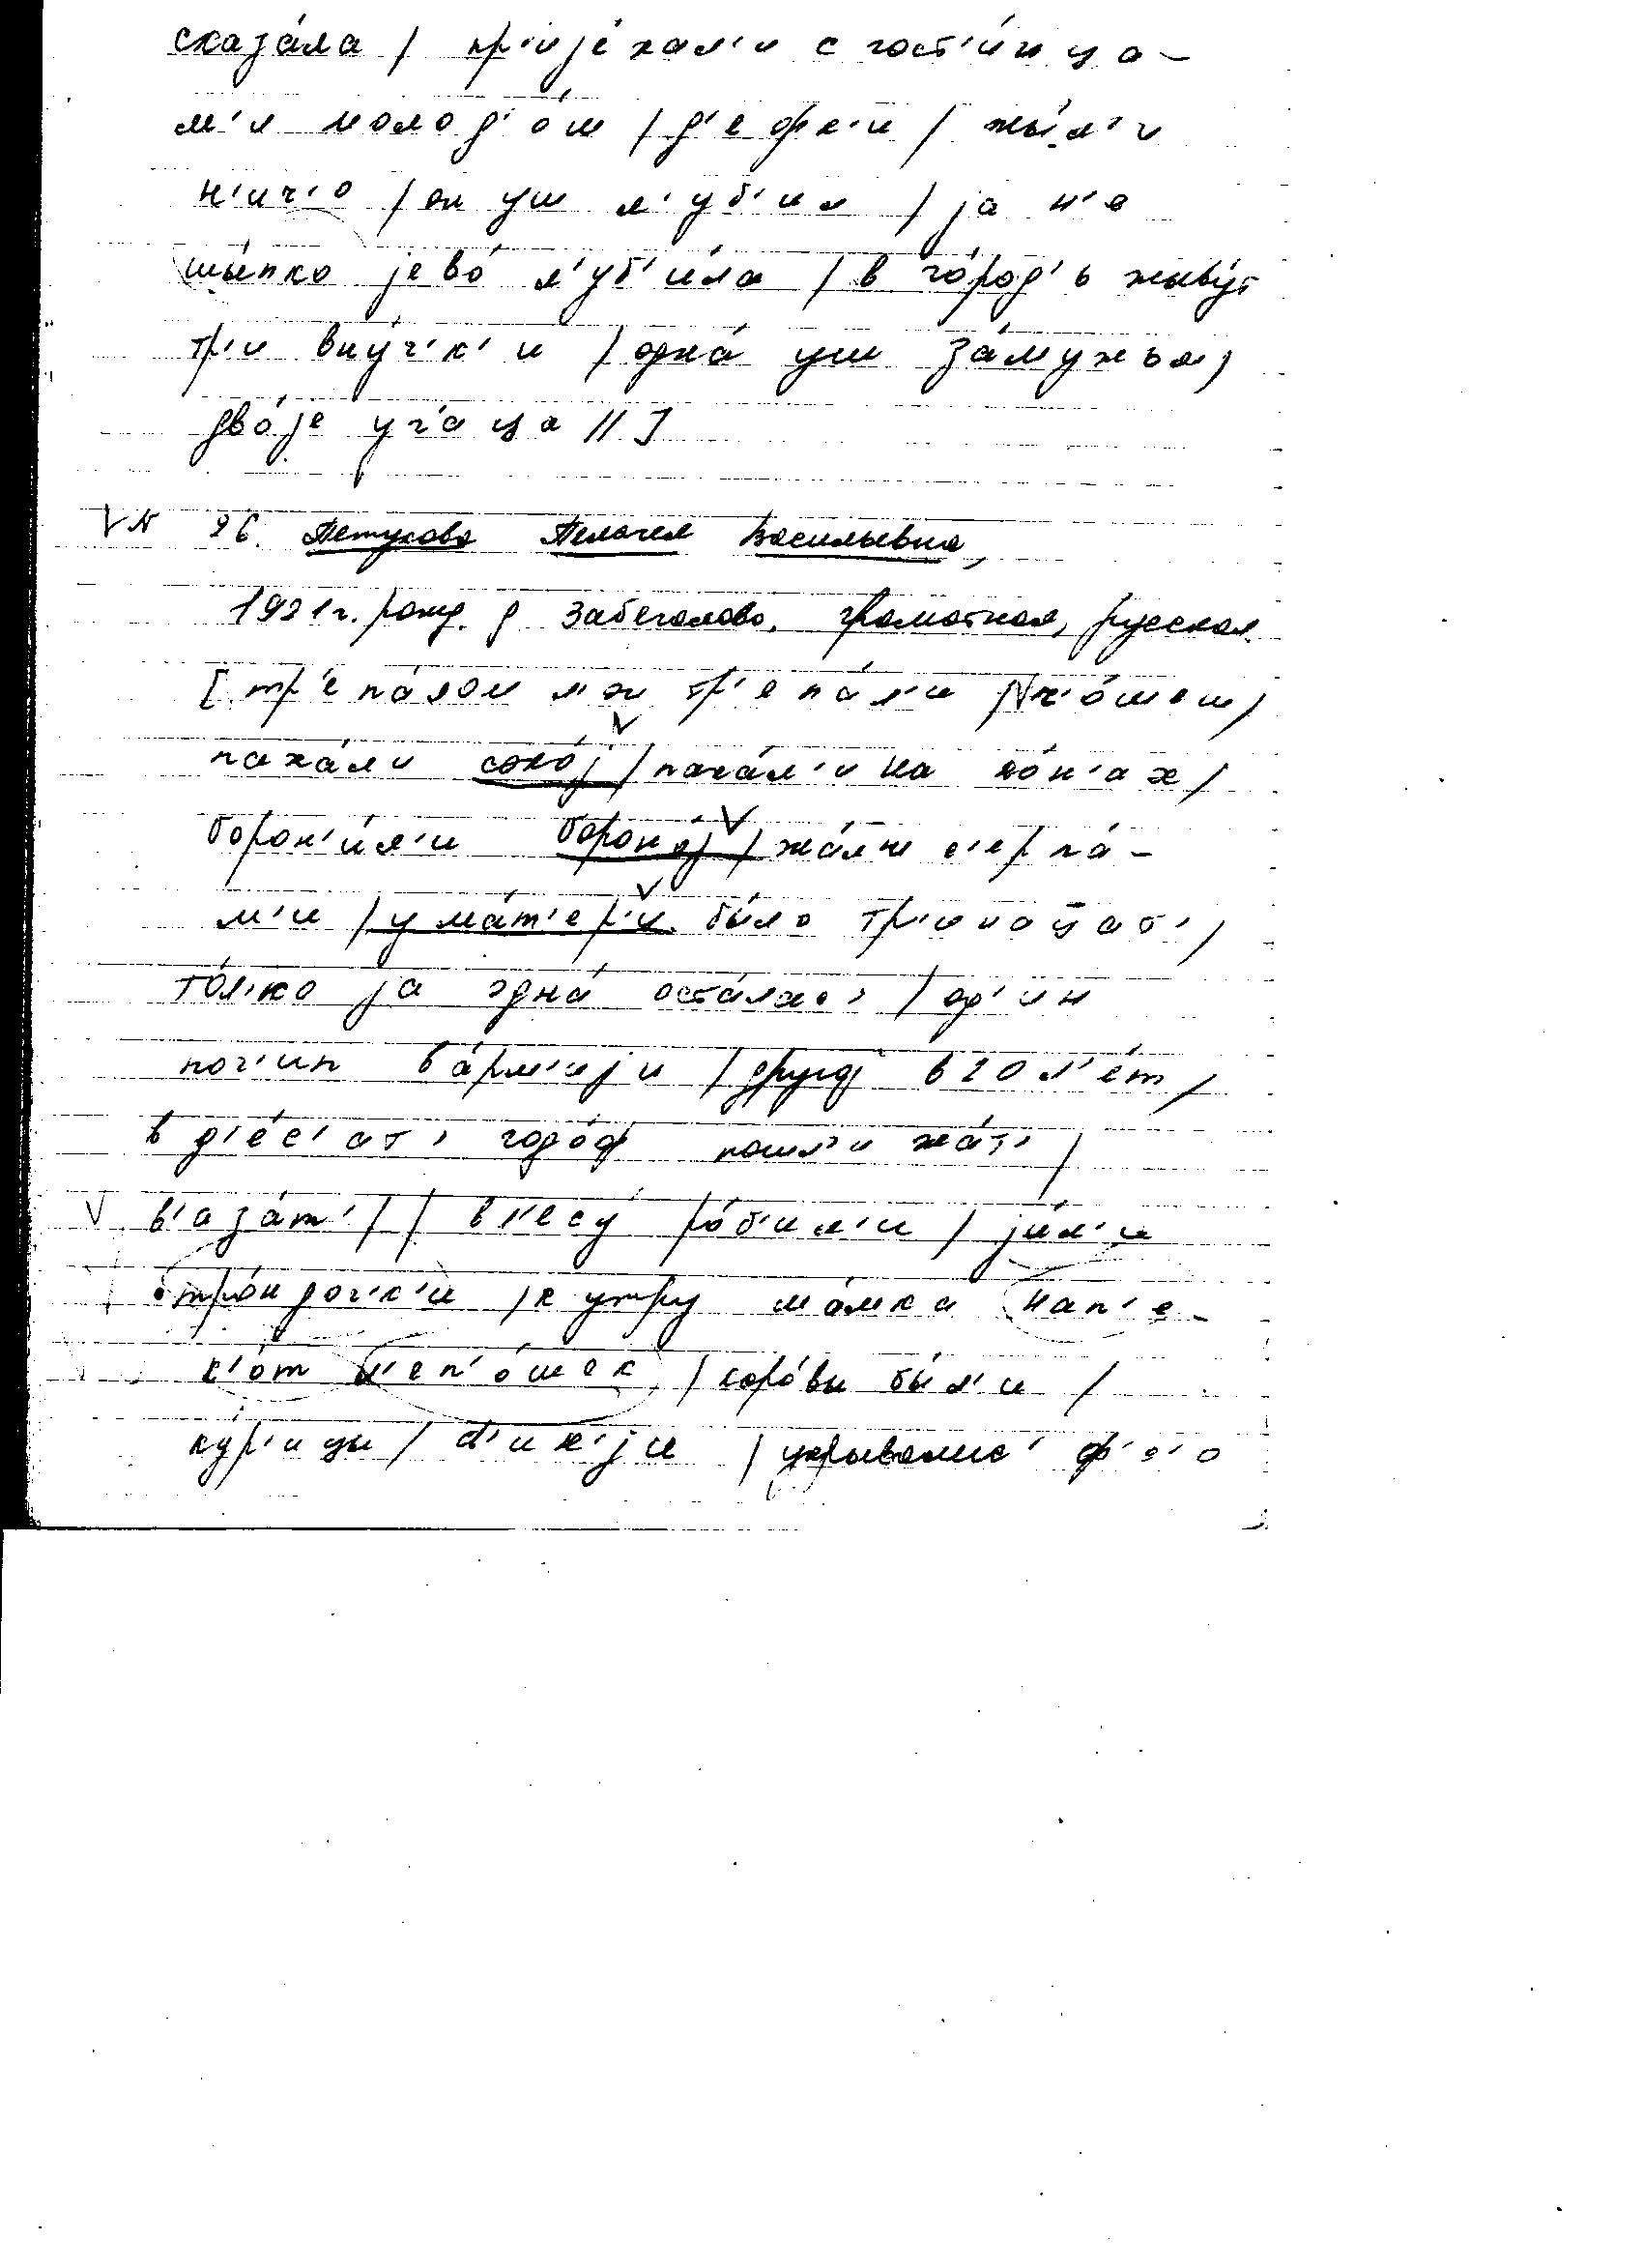 сказа́ла / пр'ијє́хал'и с гост'и́нца-
м'и молод'о́ш / д'е́фк'и / жы́л'и
н'ич'о / он уш л'у́б'ил / ја н'е
шы́пко јево́ л'уб'и́ла / в го́род'ь живу́т
тр'и вну́ч'к'и / одна́ уш за́мужьм /
дво́је уч'а́ца // ]
V N 26. Петухова Пелагея Васильевна,
1921 г. рожд. д. Забегалово, грамотная, русская
[ тр'епа́лом л'он тр'епа́л'и /
паха́ли сохо́ј / паха́л'и на ко́н'ах /
борон'и́л'и бороно́ј / жа́ли с'ерпа́-
м'и / у ма́т'ер'и бы́ло тр'инаца́т' /
то́л'ко ја одна́ оста́лас' / од'ин
поч'ип в а́рм'ији / друго́ј в 20 л'е́т /
в д'е́с'ат' годо́ф пошл'и жа́т' /
V в'аза́т' / / в л'есу́ ро́б'ил'и / јил'и
к утру ма́мка нап'е-
к'о́т л'еп'о́шек / коро́вы бы́л'и /
ку́р'ицы / укрывалис'